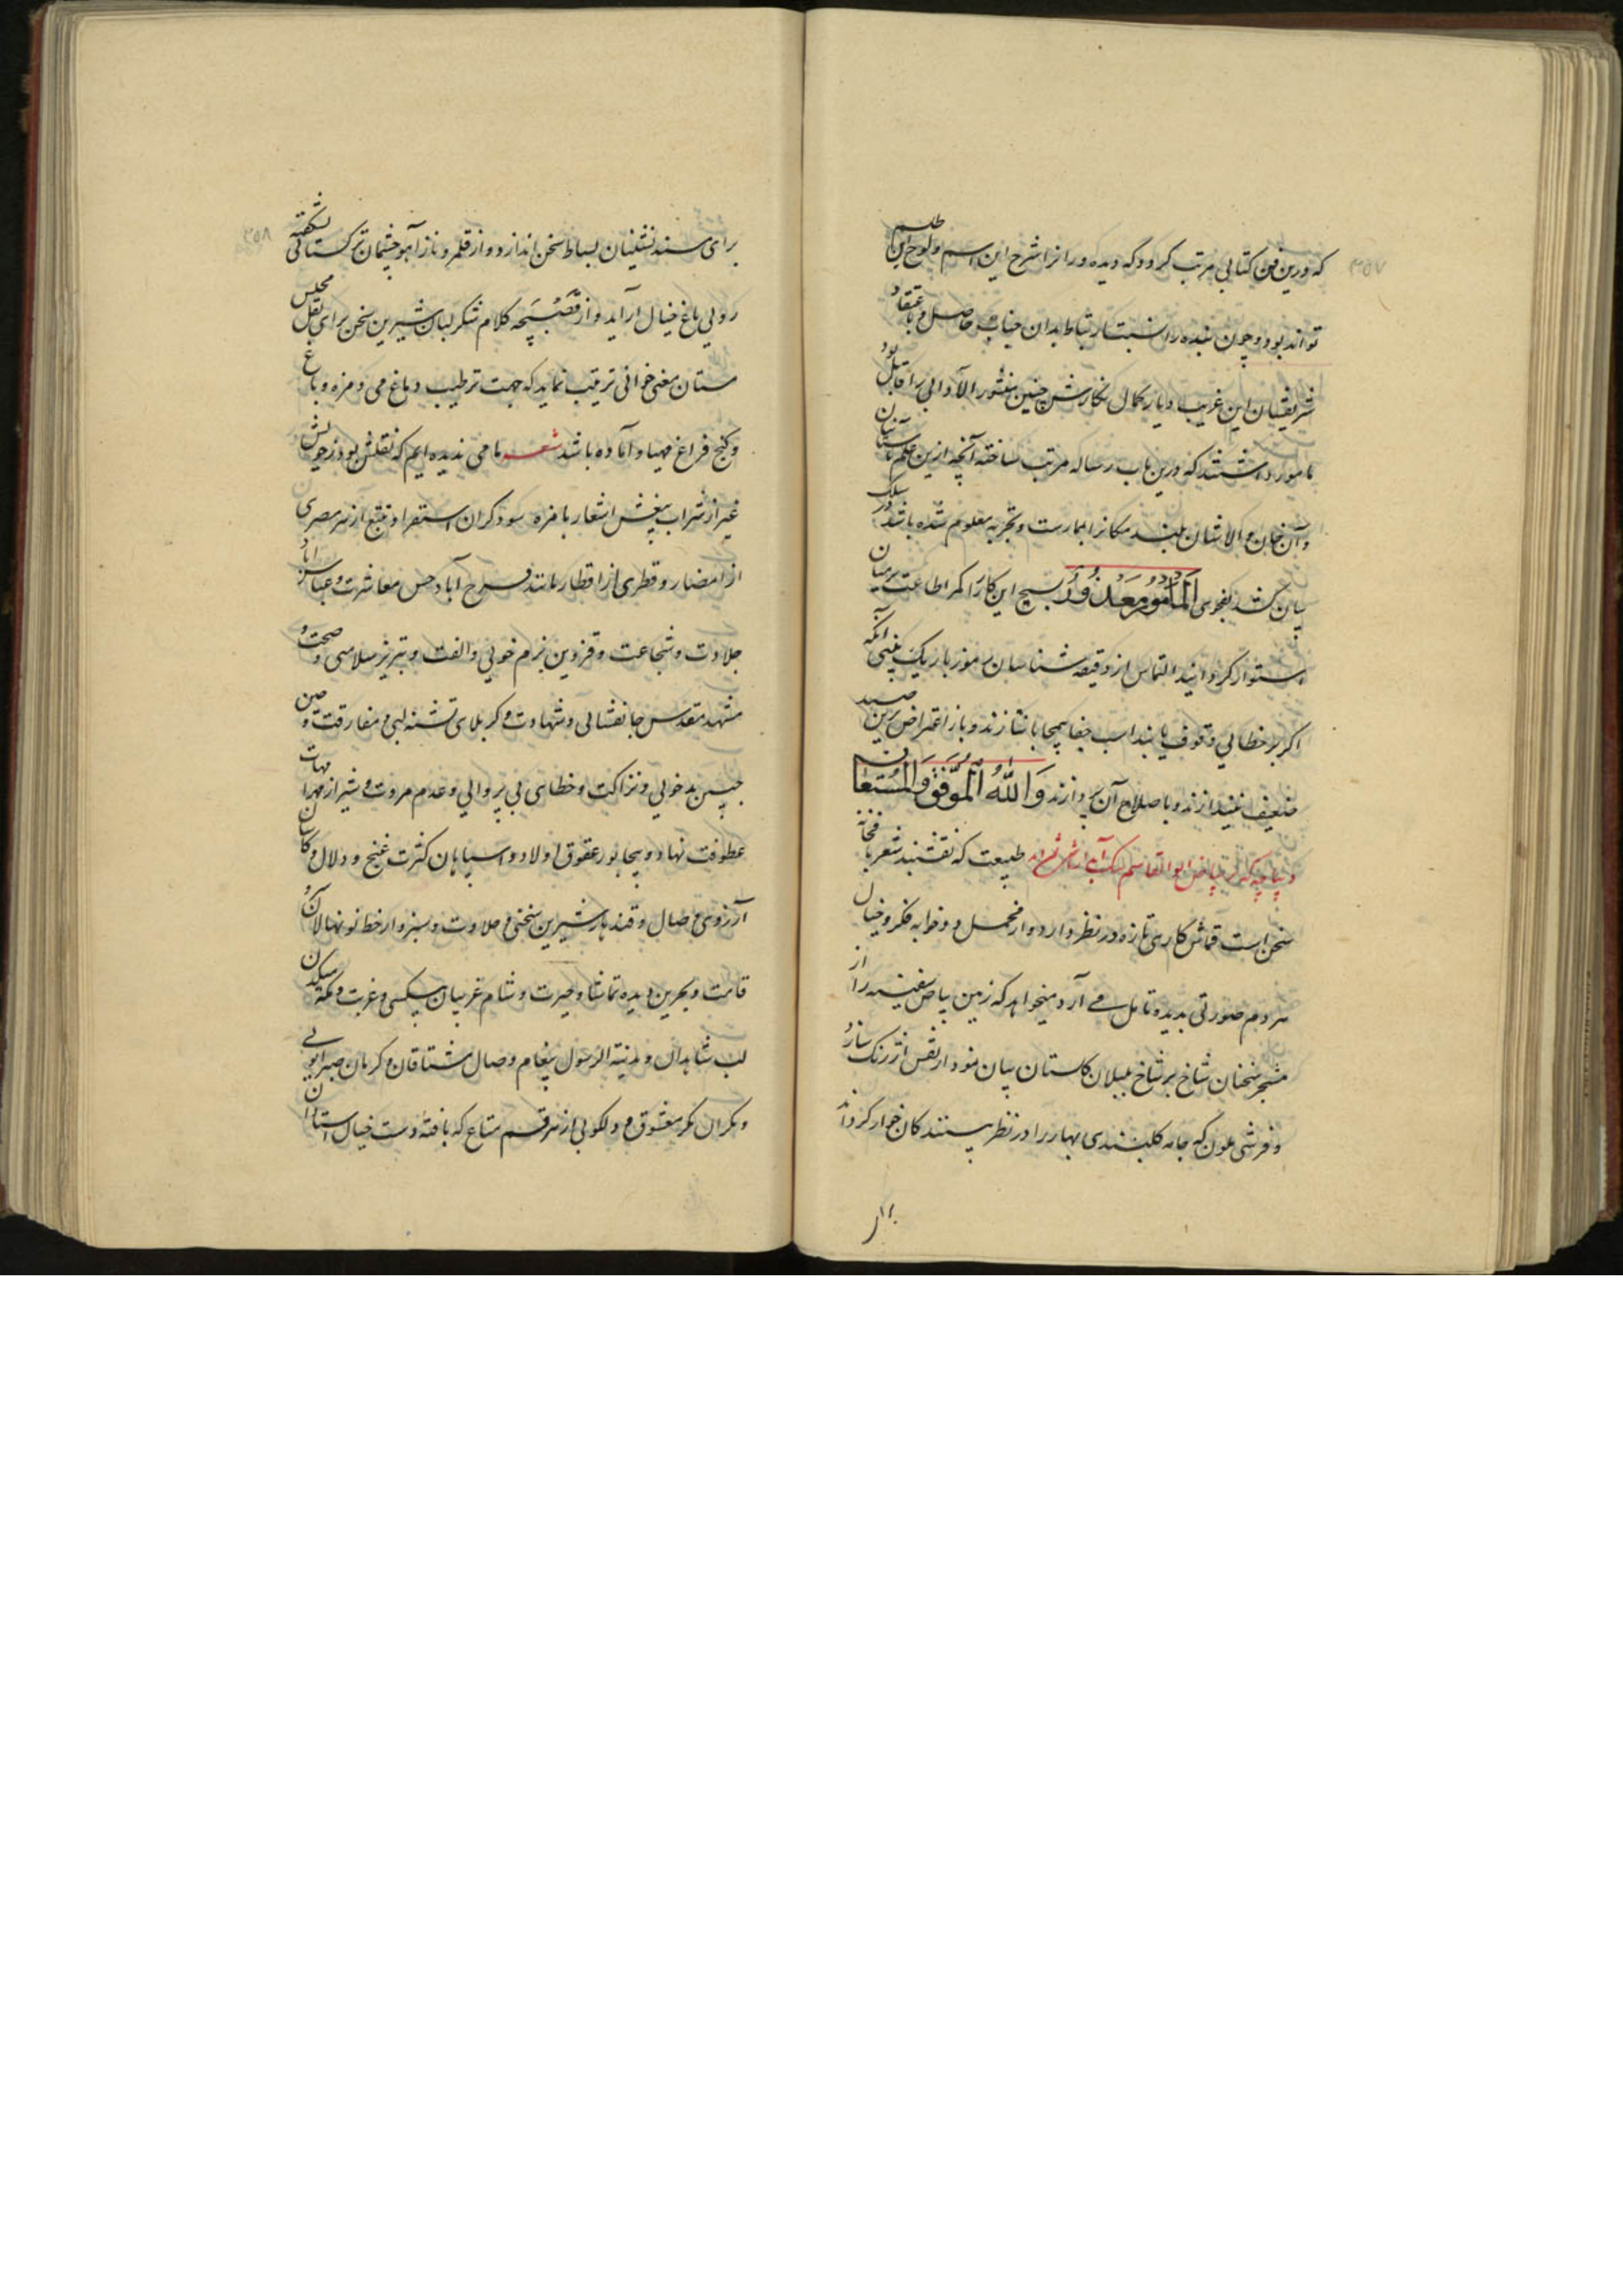 ۳۵۷
که درین فن کتابی مرتب کردد که دیده ور انرا شرح این اسم و لوح این طلسم
تواند بود و چون بنده را نسبت ارتباط بدان جناب حاصل و باعتقاد
شریفشان این غریب دیار کمال نگارش چنین منثور الآوالی را قابل بود
مامور داشتند که درین باب رساله مرتب ساخته آنچه ازین علم باستان
و آن خان والاشان بلند مکانرا بممارست و تجربه معلوم شده باشد در سلک
بیان کشد بفحوی المأمور معذور بسیج این کار را کمر اطاعت بر میان
استوار کردانید التماس از دقیقه شناسان رموز باریک بینی آنکه
اکر بر خطائی وقوف یابند اسب جفا بیمحابا نتازند و باز اعتراض برین صید
ضعیف نیندازند و باصلاح آن پردازند والله الموفق والمستعان
دیباچه که بر بیاض ابوالقاسم بیک طبیعت که نقشبند شعر بافخانه
سخن است قماش کاری تازه در نظر دارد و از مخمل دو خوابه فکر و خیال
هر دم صورتی بدیده تامل می آرد میخواهد که زمین بیاض سفینه را از
مشجر سخنان شاخ بر شاخ بلبلان کلستان بیان نمودار نفس ارژنک سازد
و فرشی ملون که جامه کلبندی بهار را در نظر پسندکان خوار کرداند
برای
۳۵۸
برای مسند نشینان بساط سخن اندازد و از قلمرو ناز آهو چشمان ترکستانی شکفته
روئی باغ خیال آراید و از قصبچه کلام شکر لبان شیرین سخن برای نقل مجلس
مستان معنی خوانی ترتیب نماید که جهت ترطیب دماغ می و مزه و باغ
و کنج فراغ مهیا و آماده باشد شعر ما می ندیده ایم که نقلش بود ز خویش
غیر از شراب بیغش اشعار بامزه سوداکران استقرا و تتبع از هر مصری
از امصار و قطری از اقطار مانند فرح آباد حسن معاشرت و عباس اباد
جلادت و شجاعت و قزوین بزم خوبی و الفت و تبریز سلامتی و صحت و
مشهد مقدس جانفشانی و شهادت و کربلای تشنه لبی و مفارقت و چین
جبین بدخوئی و نزاکت و خطای بی پروائی و عدم مروت و شیراز مهر امهات
عطوفت نهاد و بیجاپور عقوق اولاد و اسپاهان کثرت غنج و دلال و کاشان
آرزوی وصال و قندهار شیرین سخنی و حلاوت و سبزوار خط نونهالان و
قامت و بحرین دیده تماشا و حیرت و شام غریبان بیکسی و غربت و مکه
لب شاهدان و مدینة الرسول پیغام وصال مشتاقان و کرمان صبر ایوبی
و مکران مکر معشوق و دلکوبی از هر قسم متاع که بافته دست خیال استادان